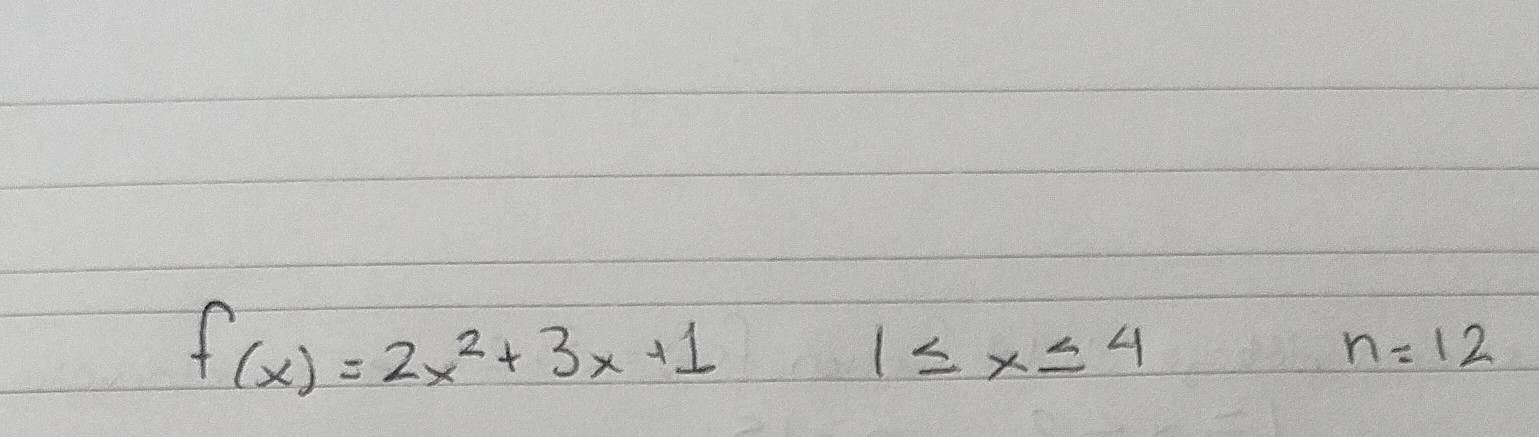 f(x) = 2x² + 3x + 1 1 ≤ x ≤ 4 n = 12